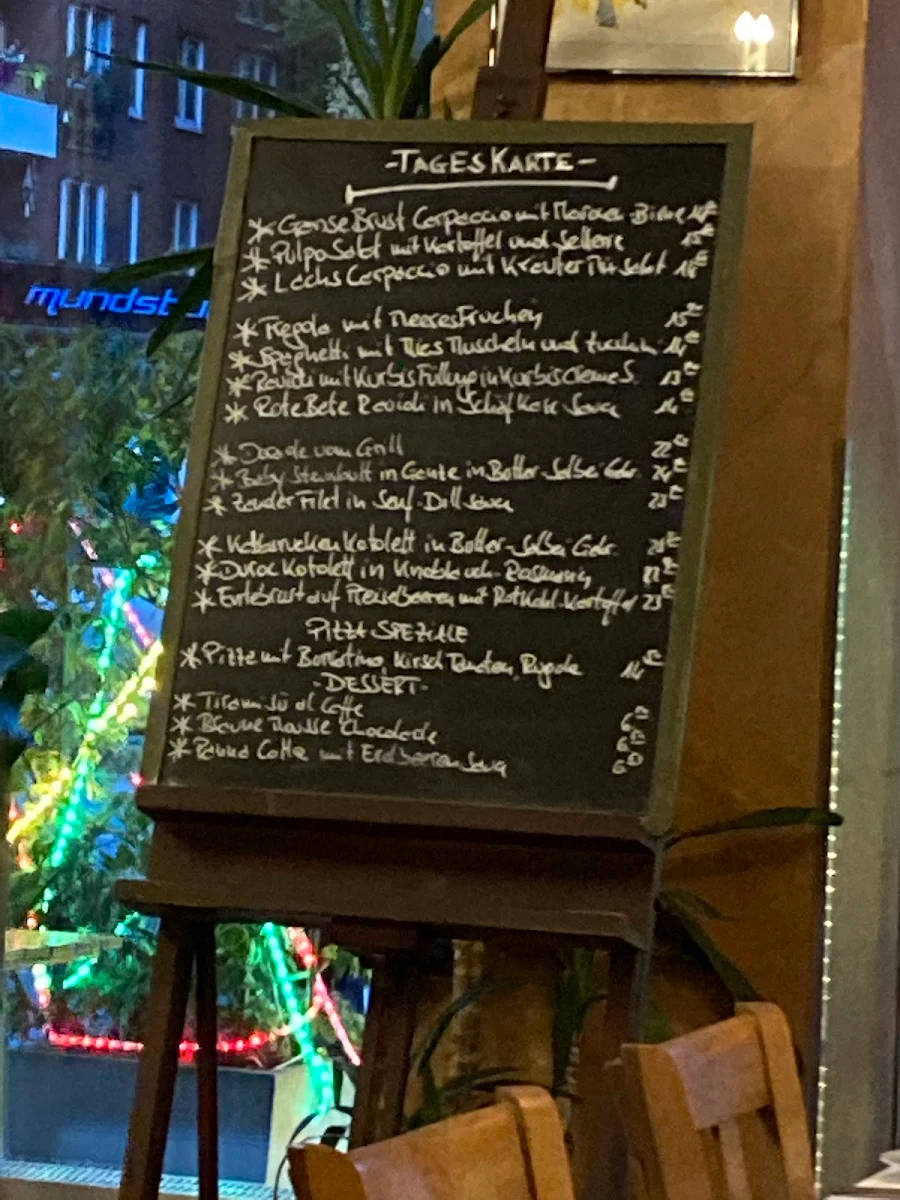 -TAGESKARTE-
* GänseBrust Carpaccio mit Birne
* PulpoSalat mit Kartoffel und Sellerie 15
* Lachs Carpaccio mit Kräuter Salat 16
* Fregola mit MeeresFruchen 15
* Spaghetti mit Mies Muscheln und 14
* Ravioli mit KürbisFüllung in KürbisCreme S. 13
* RoteBete Ravioli in SchafKäse Sauce 14
* Dorade vom Grill 22
* Baby Steinbutt in Ganze in Butter-Salbei 24
* Zander Filet in Senf-Dill Sauce 23
* Kalbsrucken Kotolett in Butter-Salbei
* Duroc Kotolett in Knoblauch-Rosmarin
* Entebrust auf Preiselbeeren mit RotKohl-Kartoffel 23
PIZZA SPEZIALE
* Pizza mit Kirsch Tomaten, Rugola 14
-DESSERT-
* Tiramisù al Caffe 6
* Mousse Chocolade 6
* Panna Cotta mit Erdbeeren Sauce 6
mundst